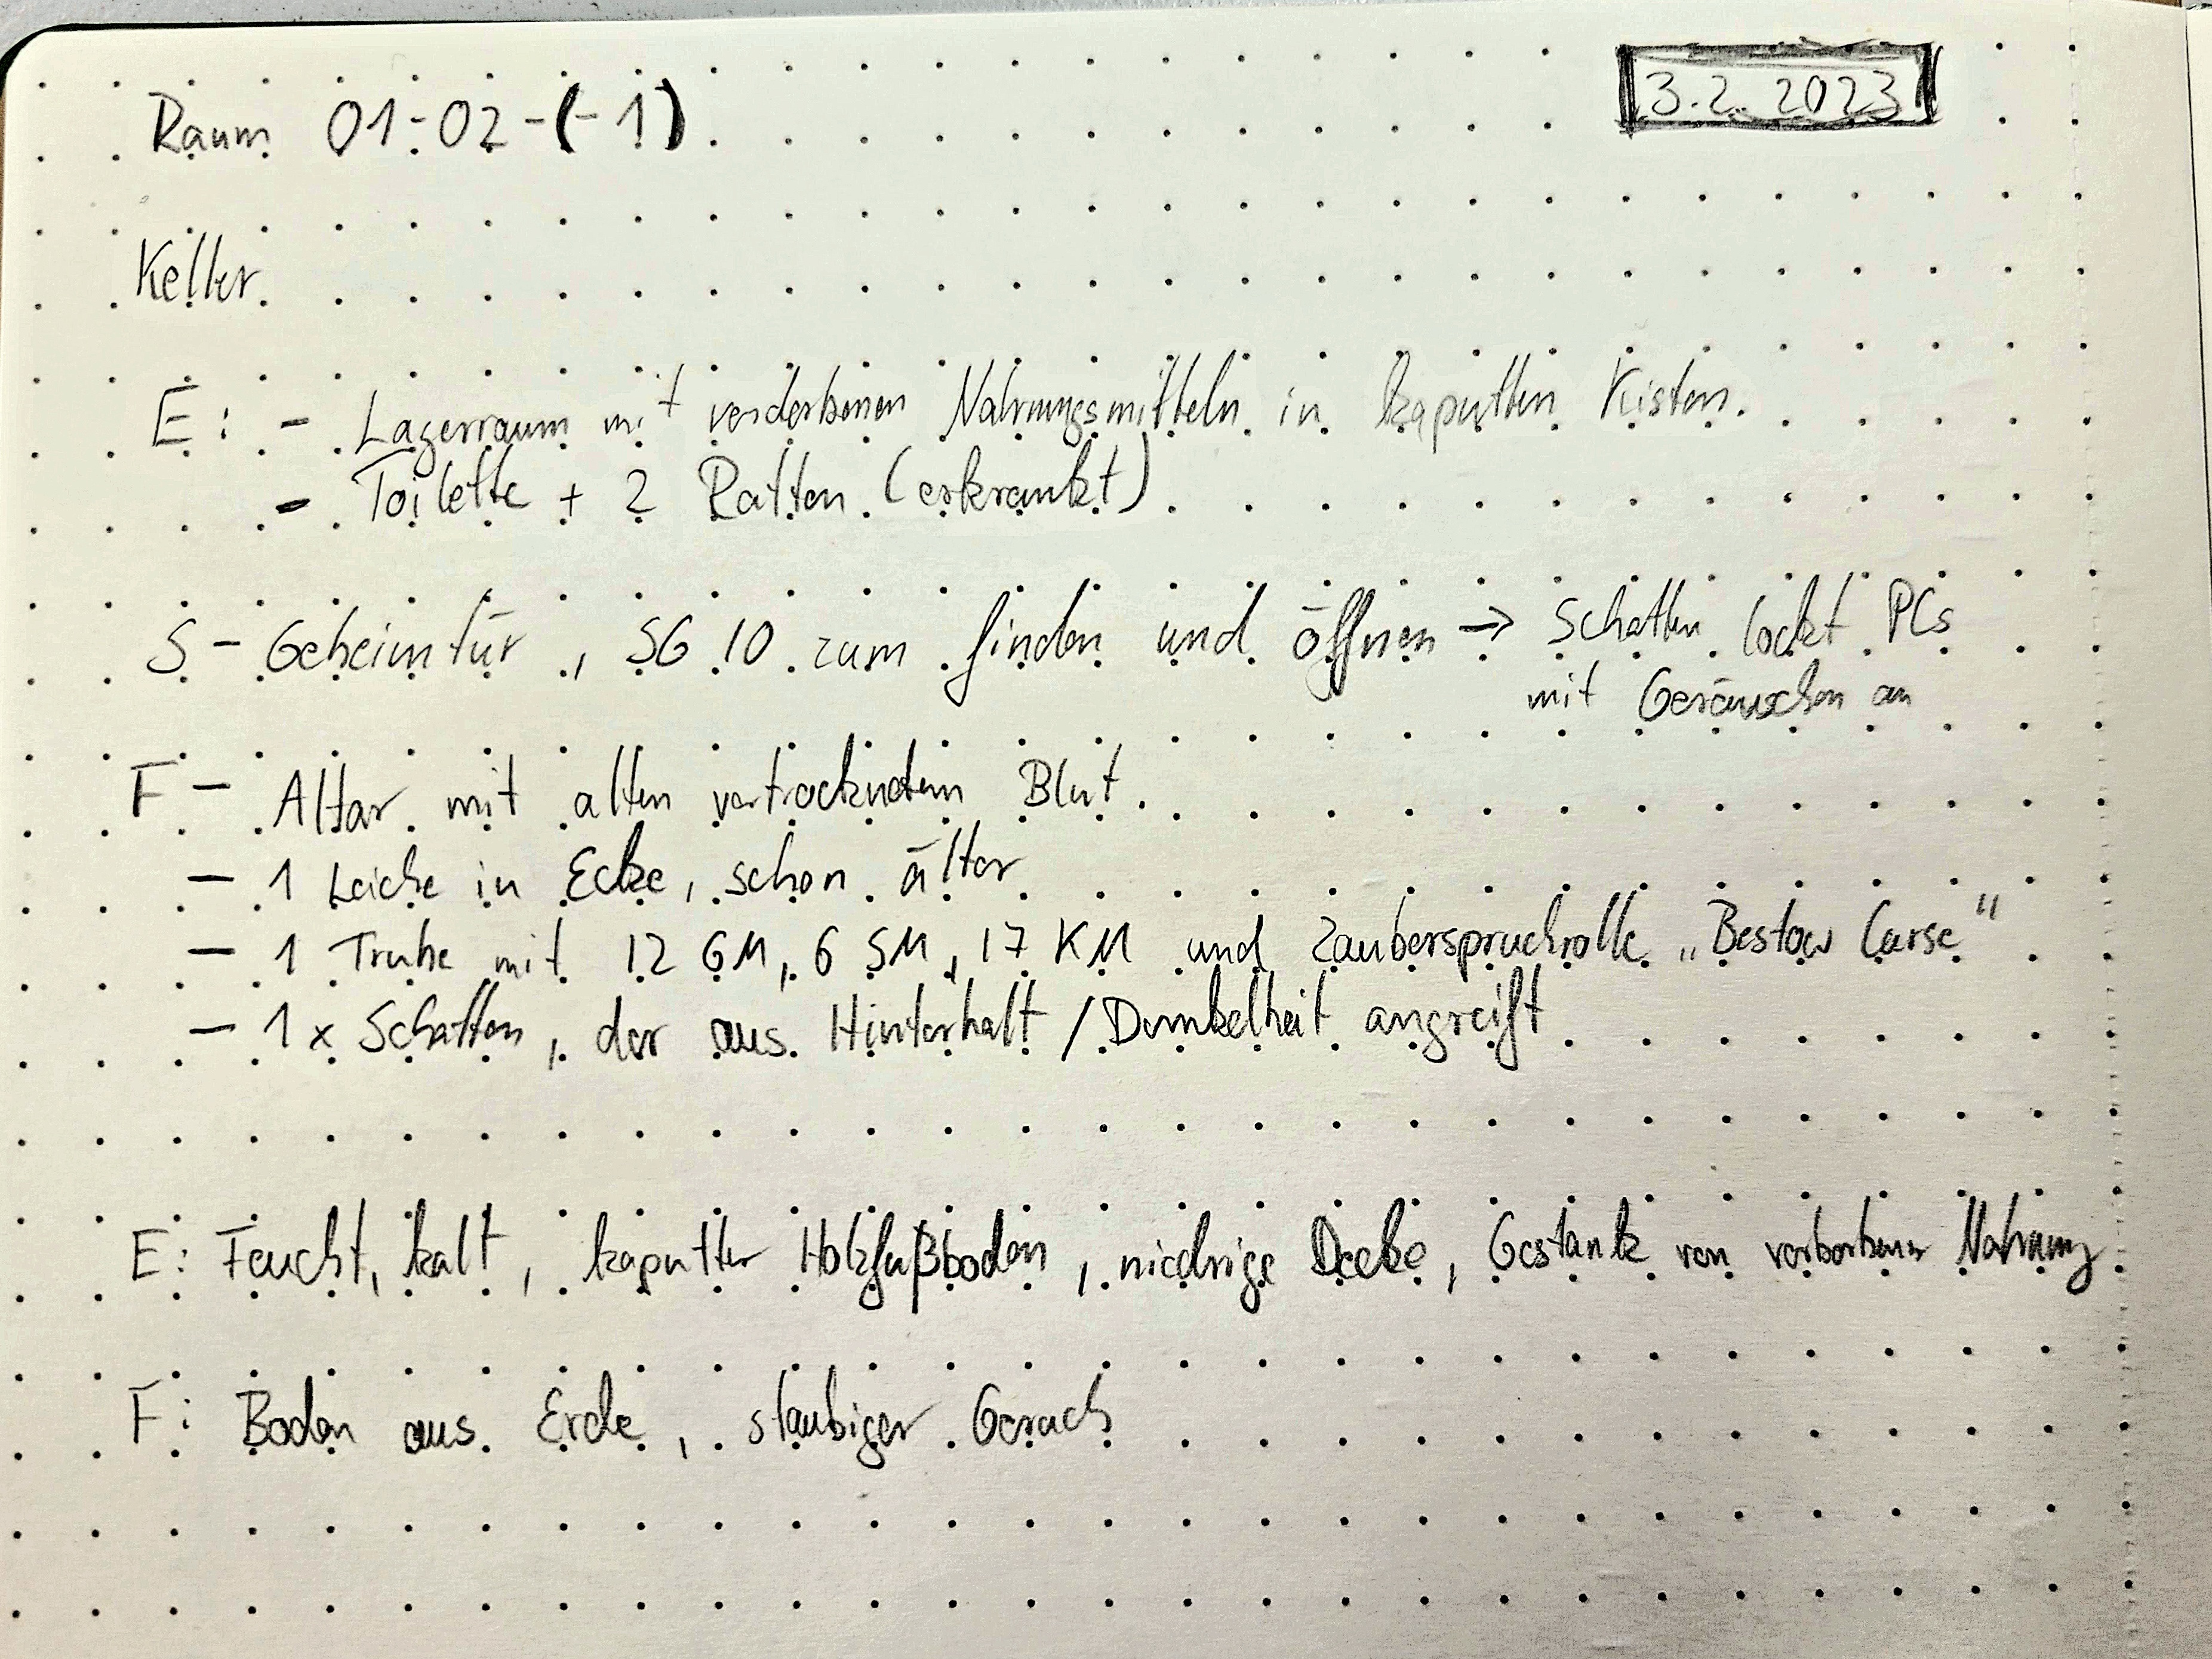 Raum 01-02-(-1)
3.2.2023
Keller
E: - Lagerraum mit verdorbenen Nahrungsmitteln in kaputten Kisten.
- Toilette + 2 Ratten (erkrankt)
S - Geheimtür, SG 10 zum finden und öffnen → Schatten lockt PCs
mit Geräuschen an
F - Altar mit alten vertrocknetem Blut.
- 1 Leiche in Ecke, schon älter
- 1 Truhe mit 12 GM, 6 SM, 17 KM und Zauberspruchrolle „Bestow Curse"
- 1x Schatten, der aus Hinterhalt / Dunkelheit angreift
E: Feucht, kalt, kaputter Holzfußboden, niedrige Decke, Gestank von verborbener Nahrung
F: Boden aus Erde, staubiger Geruch